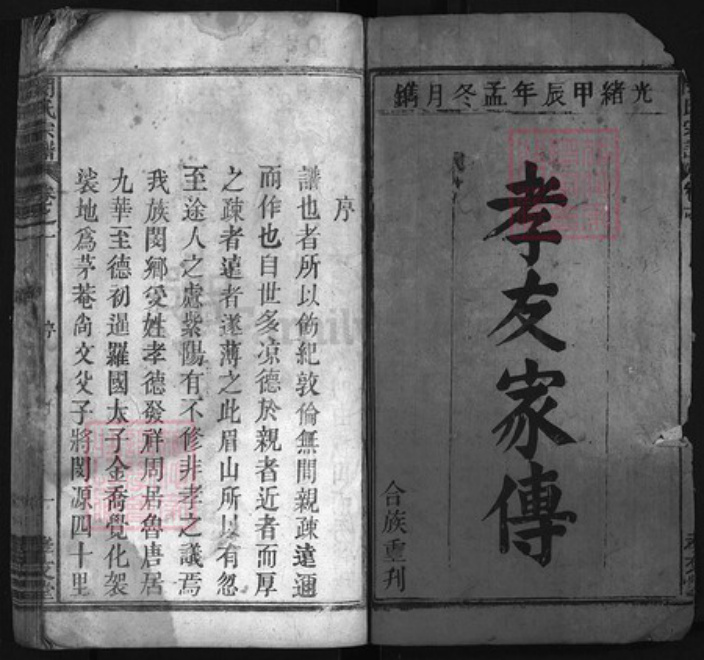 光緒甲辰年孟冬月鐫
孝友家傳
合族重刋
序
譜也者所以飭紀敦倫無間親疎遠邇
而作也自世多凉德於親者近者而厚
之疎者遠者遂薄之此眉山所以有忽
至途人之慮紫陽有不修非孝之議焉
我族閔鄉受姓孝德發祥周居魯唐居
九華至德初暹羅國太子金喬覺化袈
裟地爲茅菴尙文父子將閔源四十里
閔氏宗譜
卷之一
序
一
孝友堂